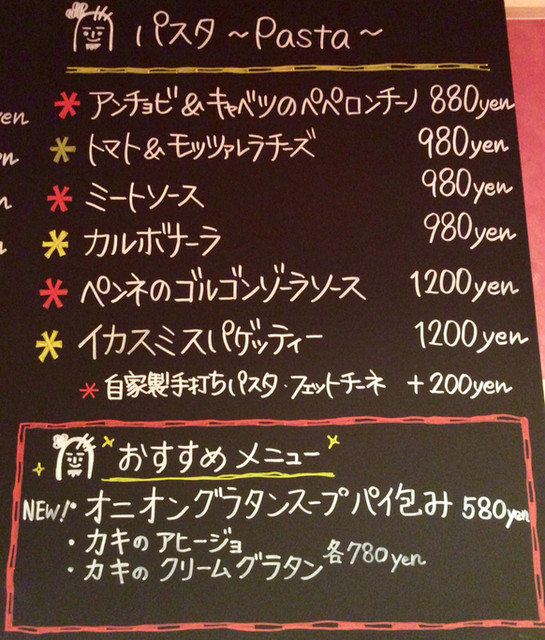 パスタ ～Pasta～
yen
* アンチョビ&キャベツのペペロンチーノ 880yen
* トマト&モッツァレラチーズ 980yen
* ミートソース 980yen
* カルボナーラ 980yen
* ペンネのゴルゴンゾーラソース 1200yen
* イカスミスパゲッティー 1200yen
* 自家製手打ちパスタ・フェットチーネ +200yen
おすすめメニュー
NEW! オニオングラタンスープパイ包み 580yen
・カキのアヒージョ
・カキのクリームグラタン 各780yen